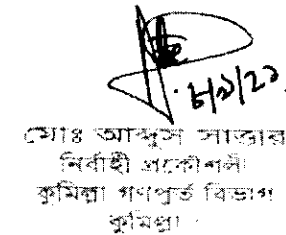 ৮/১/২১
মোঃ আব্দুস সাত্তার
নির্বাহী প্রকৌশলী
কুমিল্লা গণপূর্ত বিভাগ
কুমিল্লা